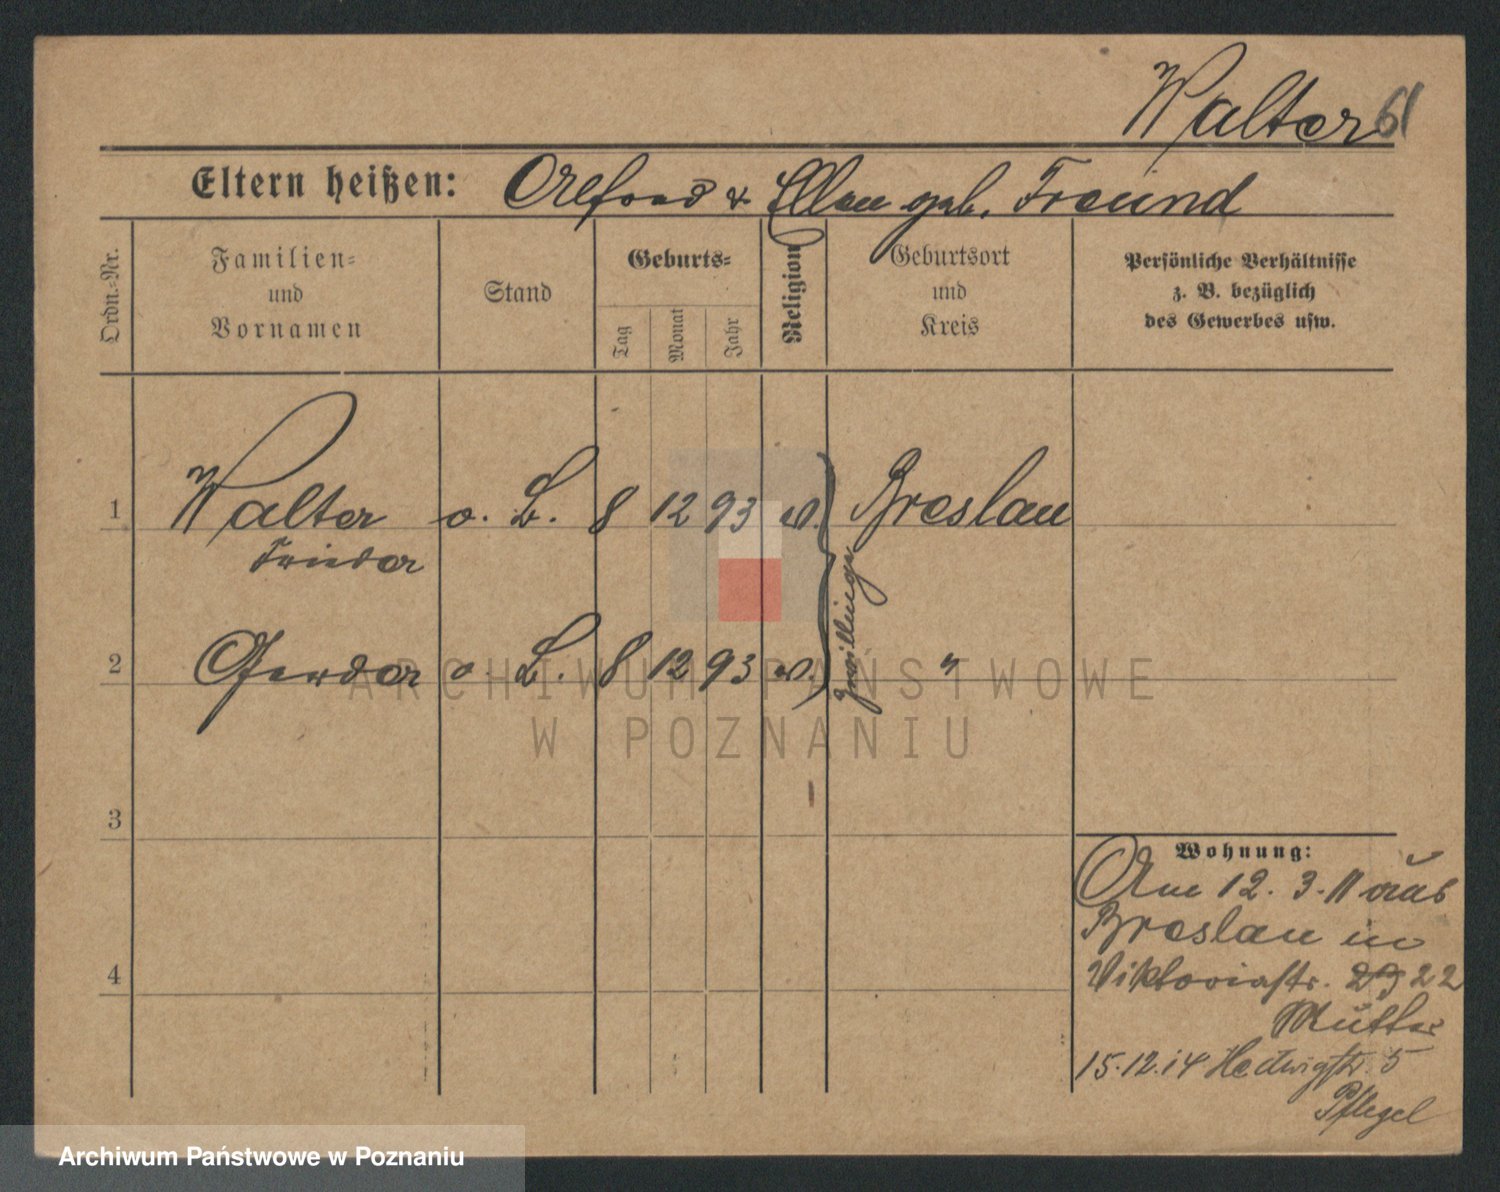 Walter 61
Eltern heißen: Alfred & Ellen geb. Freund
Ordn.-Nr.
Familien-
und
Vornamen
Stand
Geburts-
Tag
Monat
Jahr
Religion
Geburtsort
und
Kreis
Persönliche Verhältnisse
z. B. bezüglich
des Gewerbes usw.
1 Walter o. B. 8 12 93 Breslau
Zwillinge
2 o. B. 8 12 93 "
3
4
Wohnung:
Am 12. 3. 11 aus
Breslau in
Viktoriastr. 22
Mutter
15.12.14 Hedwigstr. 5
Pflegel
ARCHIWUM PAŃSTWOWE
W POZNANIU
Archiwum Państwowe w Poznaniu